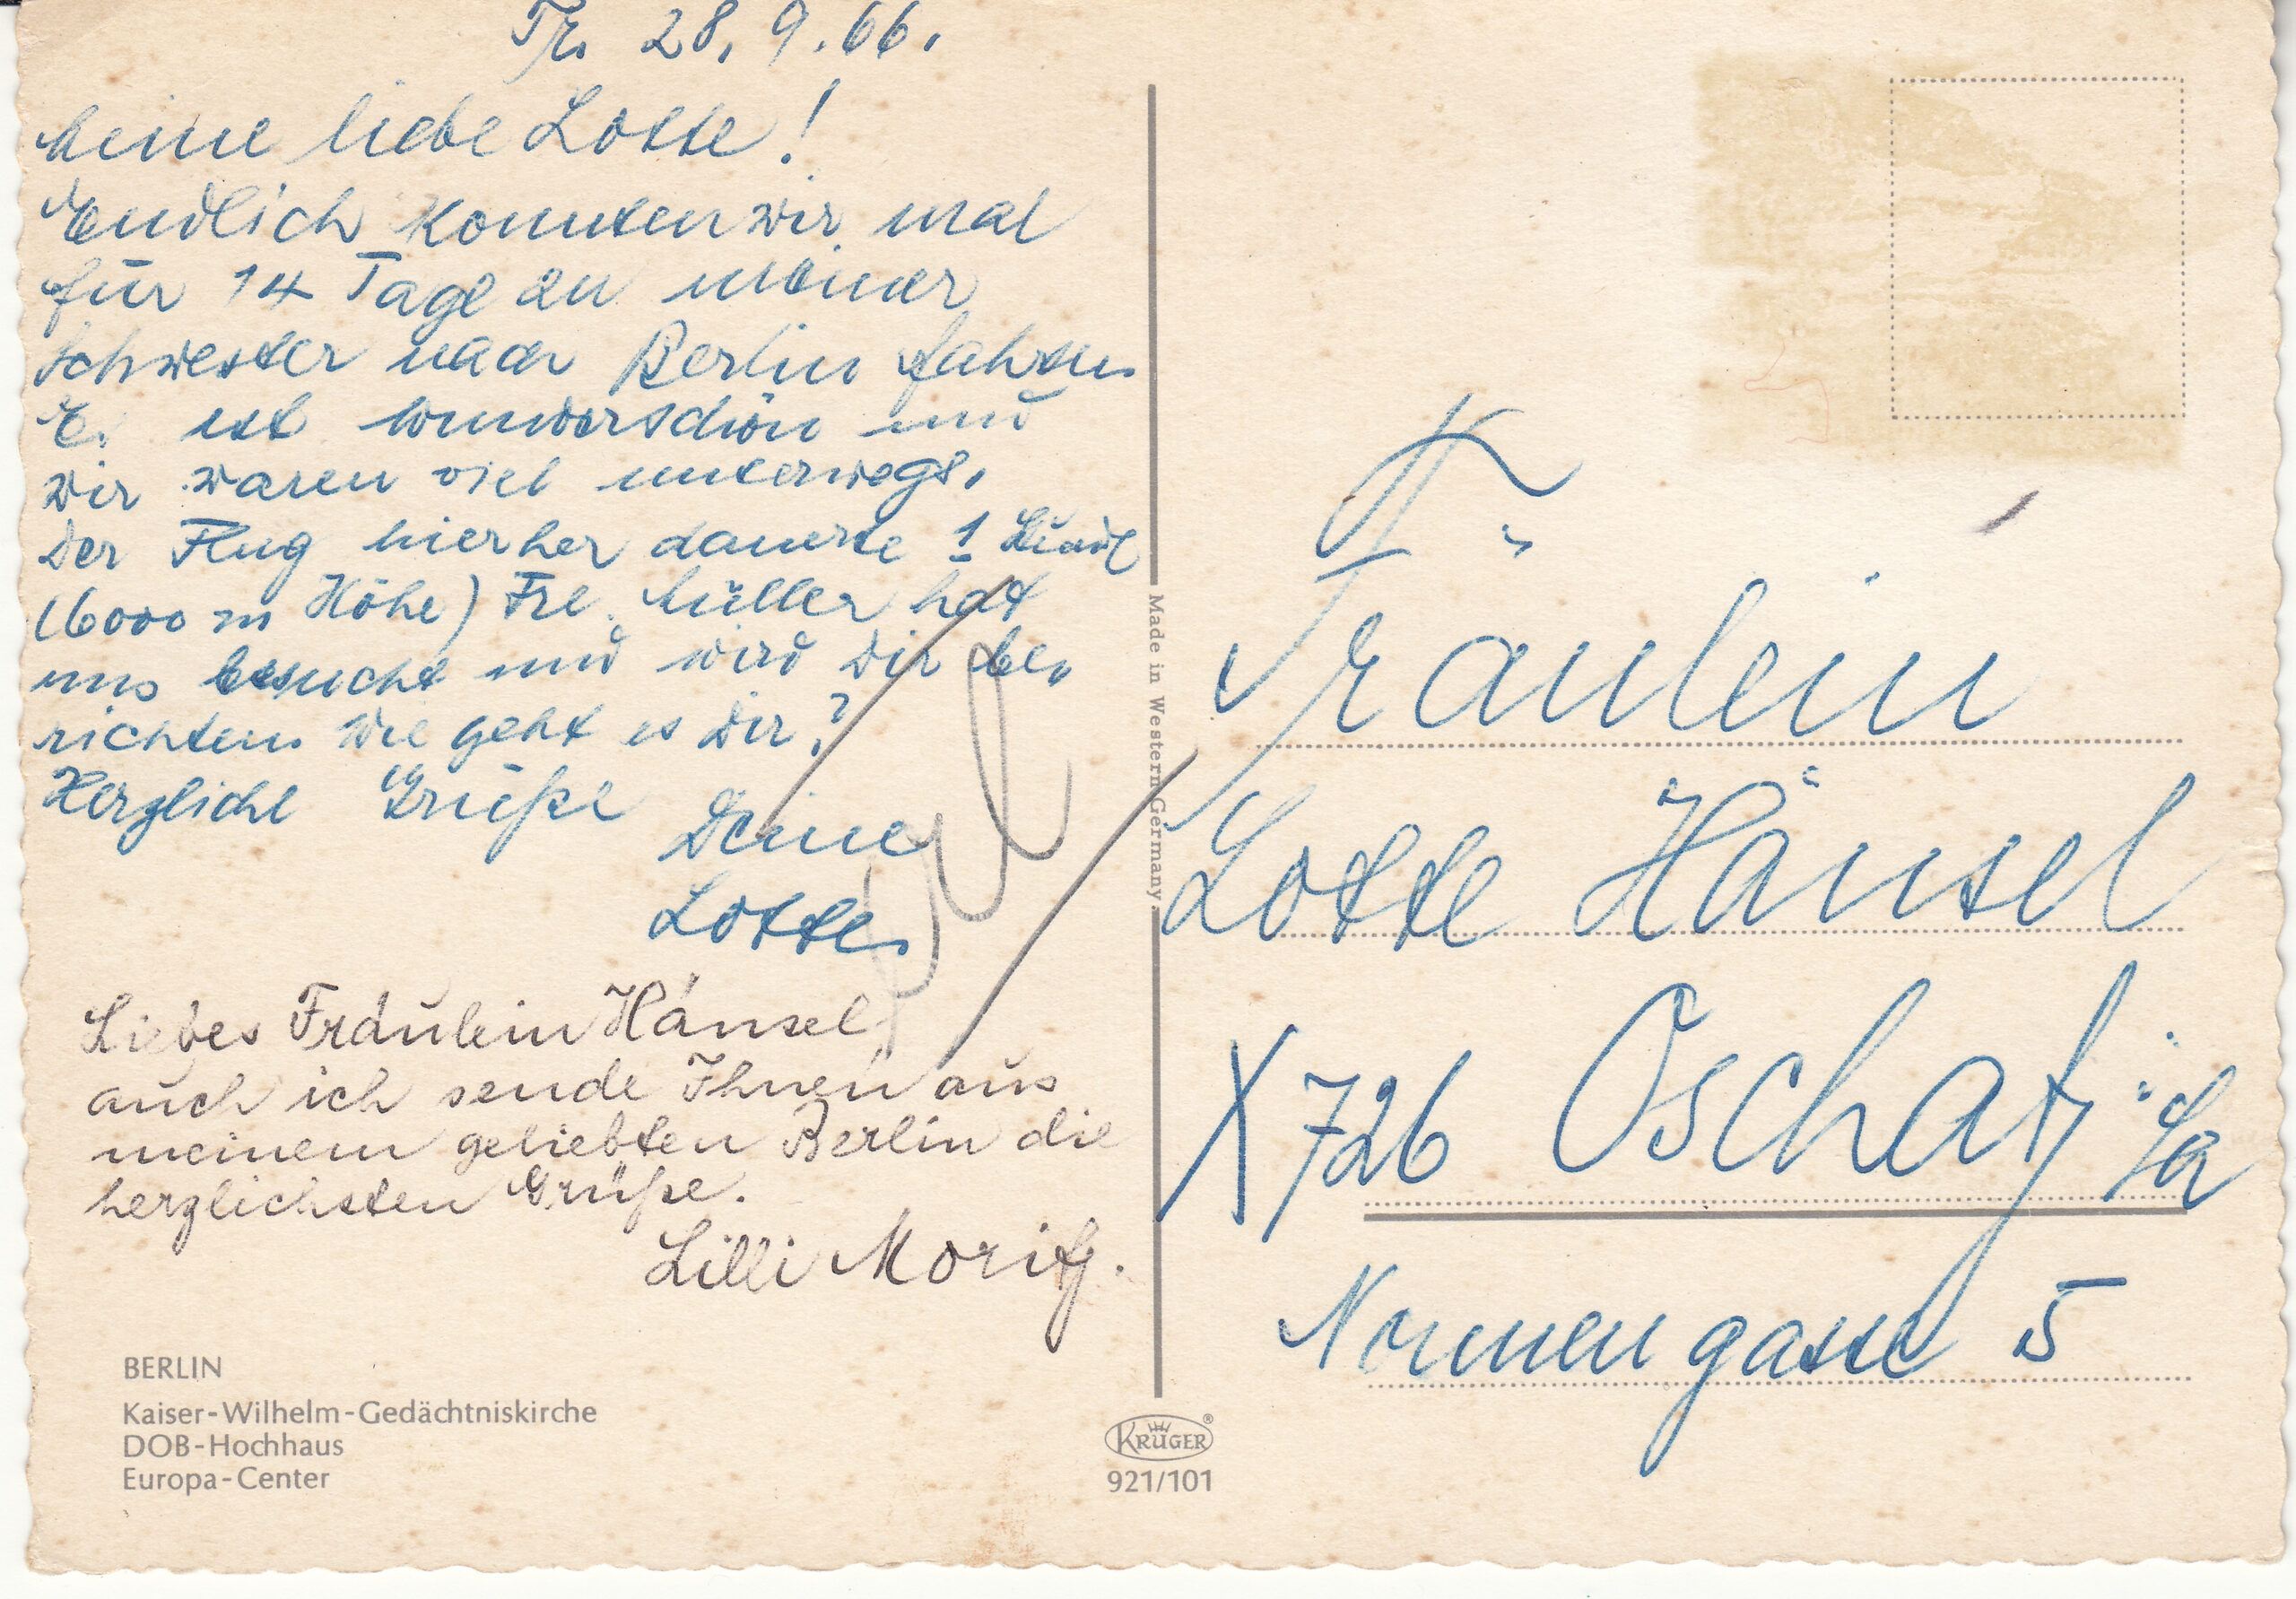 Fr. 28.9.66.
Meine liebe Lotte!
Endlich konnten wir mal
für 14 Tage zu meiner
Schwester nach Berlin fahren.
Es ist wunderschön und
wir waren viel unterwegs.
Der Flug hierher dauerte 1 Stunde
(6000 m Höhe) Frl. Müller hat
uns besucht und wird Dir be-
richten. Wie geht es Dir?
Herzliche Grüße
Deine
Lotte.
Liebes Fräulein Hänsel,
auch ich sende Ihnen aus
meinem geliebten Berlin die
herzlichsten Grüße.
Lilli Moritz.
BERLIN
Kaiser-Wilhelm-Gedächtniskirche
DOB-Hochhaus
Europa-Center
Made in Western Germany.
KRÜGER®
921/101
Fräulein
Lotte Hänsel
X 726 Oschatz i. Sa
Nonnengasse 5